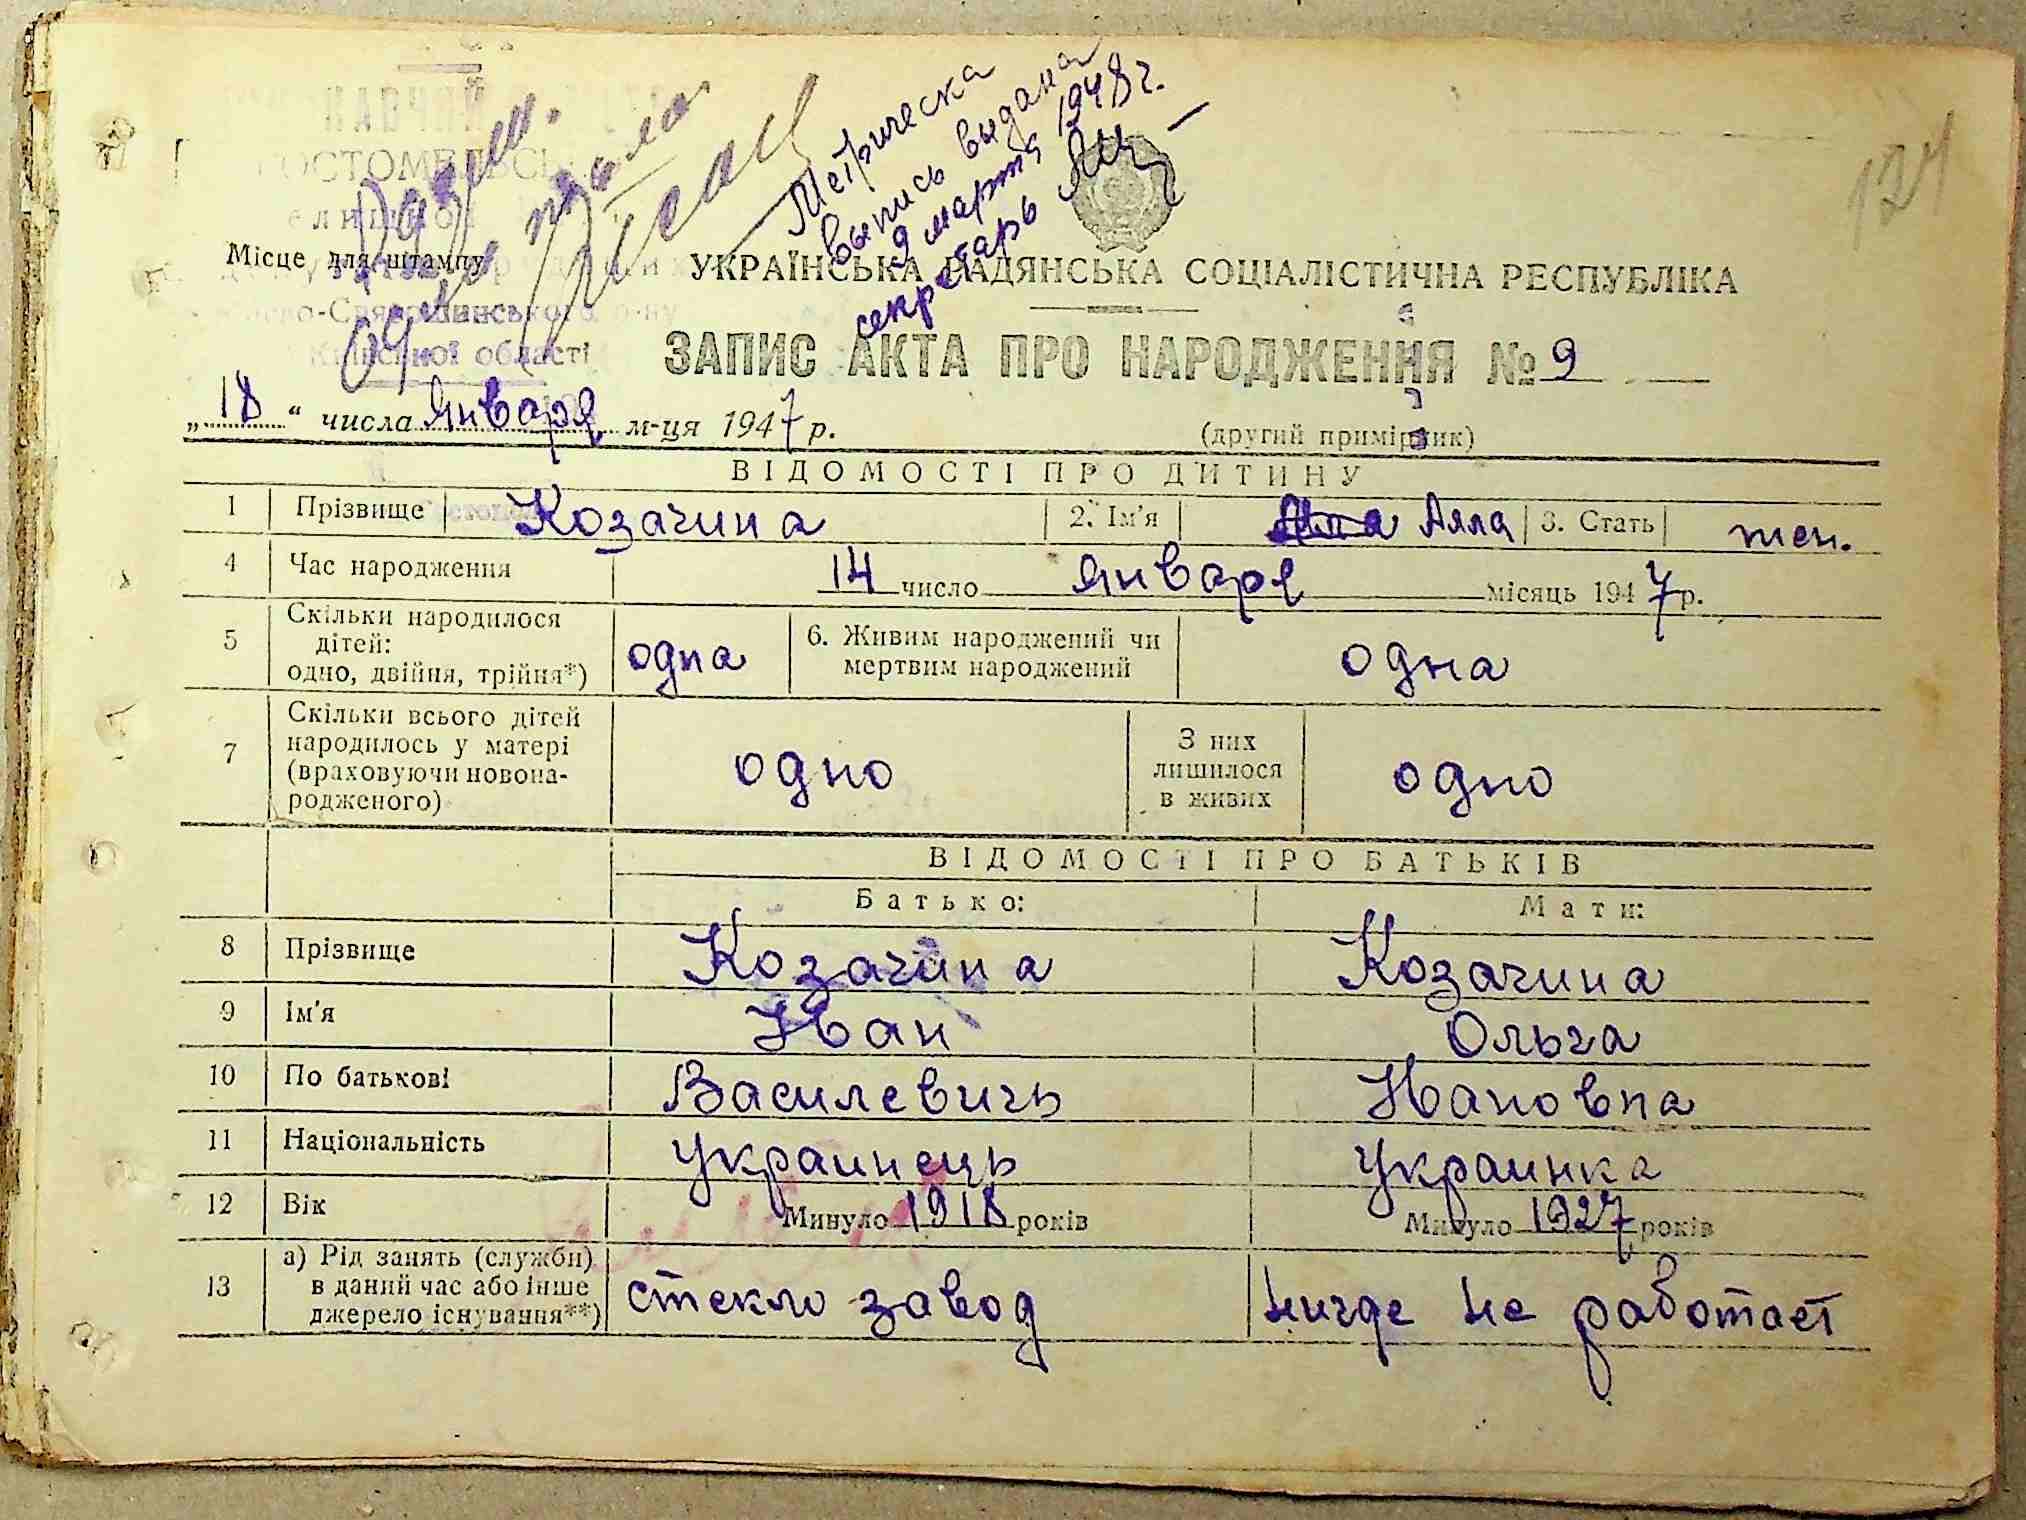 Метрическа
выпись выдана
9 марта 1948 г.
секретарь
127
Місце для штампу
Київської області
УКРАЇНСЬКА РАДЯНСЬКА СОЦІАЛІСТИЧНА РЕСПУБЛІКА
ЗАПИС АКТА ПРО НАРОДЖЕННЯ № 9
„18“ числа Января м-ця 1947 р.
(другий примірник)
ВІДОМОСТІ ПРО ДИТИНУ
1 Прізвище Козачина 2. Ім'я Алла 3. Стать жен.
4 Час народження 14 число Января місяць 1947 р.
5 Скільки народилося дітей: одно, двійня, трійня*) одна 6. Живим народжений чи мертвим народжений одна
7 Скільки всього дітей народилось у матері (враховуючи новонародженого) одно З них лишилося в живих одно
ВІДОМОСТІ ПРО БАТЬКІВ
Батько: Мати:
8 Прізвище Козачина Козачина
9 Ім'я Иван Ольга
10 По батькові Василевичь Ивановна
11 Національність украинець украинка
12 Вік Минуло 1918 років Минуло 1927 років
13 а) Рід занять (служби) в даний час або інше джерело існування**) стекло завод нигде не работает